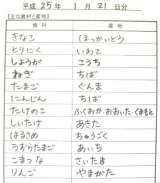 平成 25年 1月 21日分
【主な食材と産地】
食材 産地
きなこ ほっかいどう
とりにく いわて
しょうが こうち
ねぎ ちば
たまご ぐんま
にんじん ちば
たけのこ ふくおか、おおいた、くまもと
しいたけ あきた
はるさめ ちゅうごく
うずらたまご あいち
こまつな さいたま
りんご やまがた